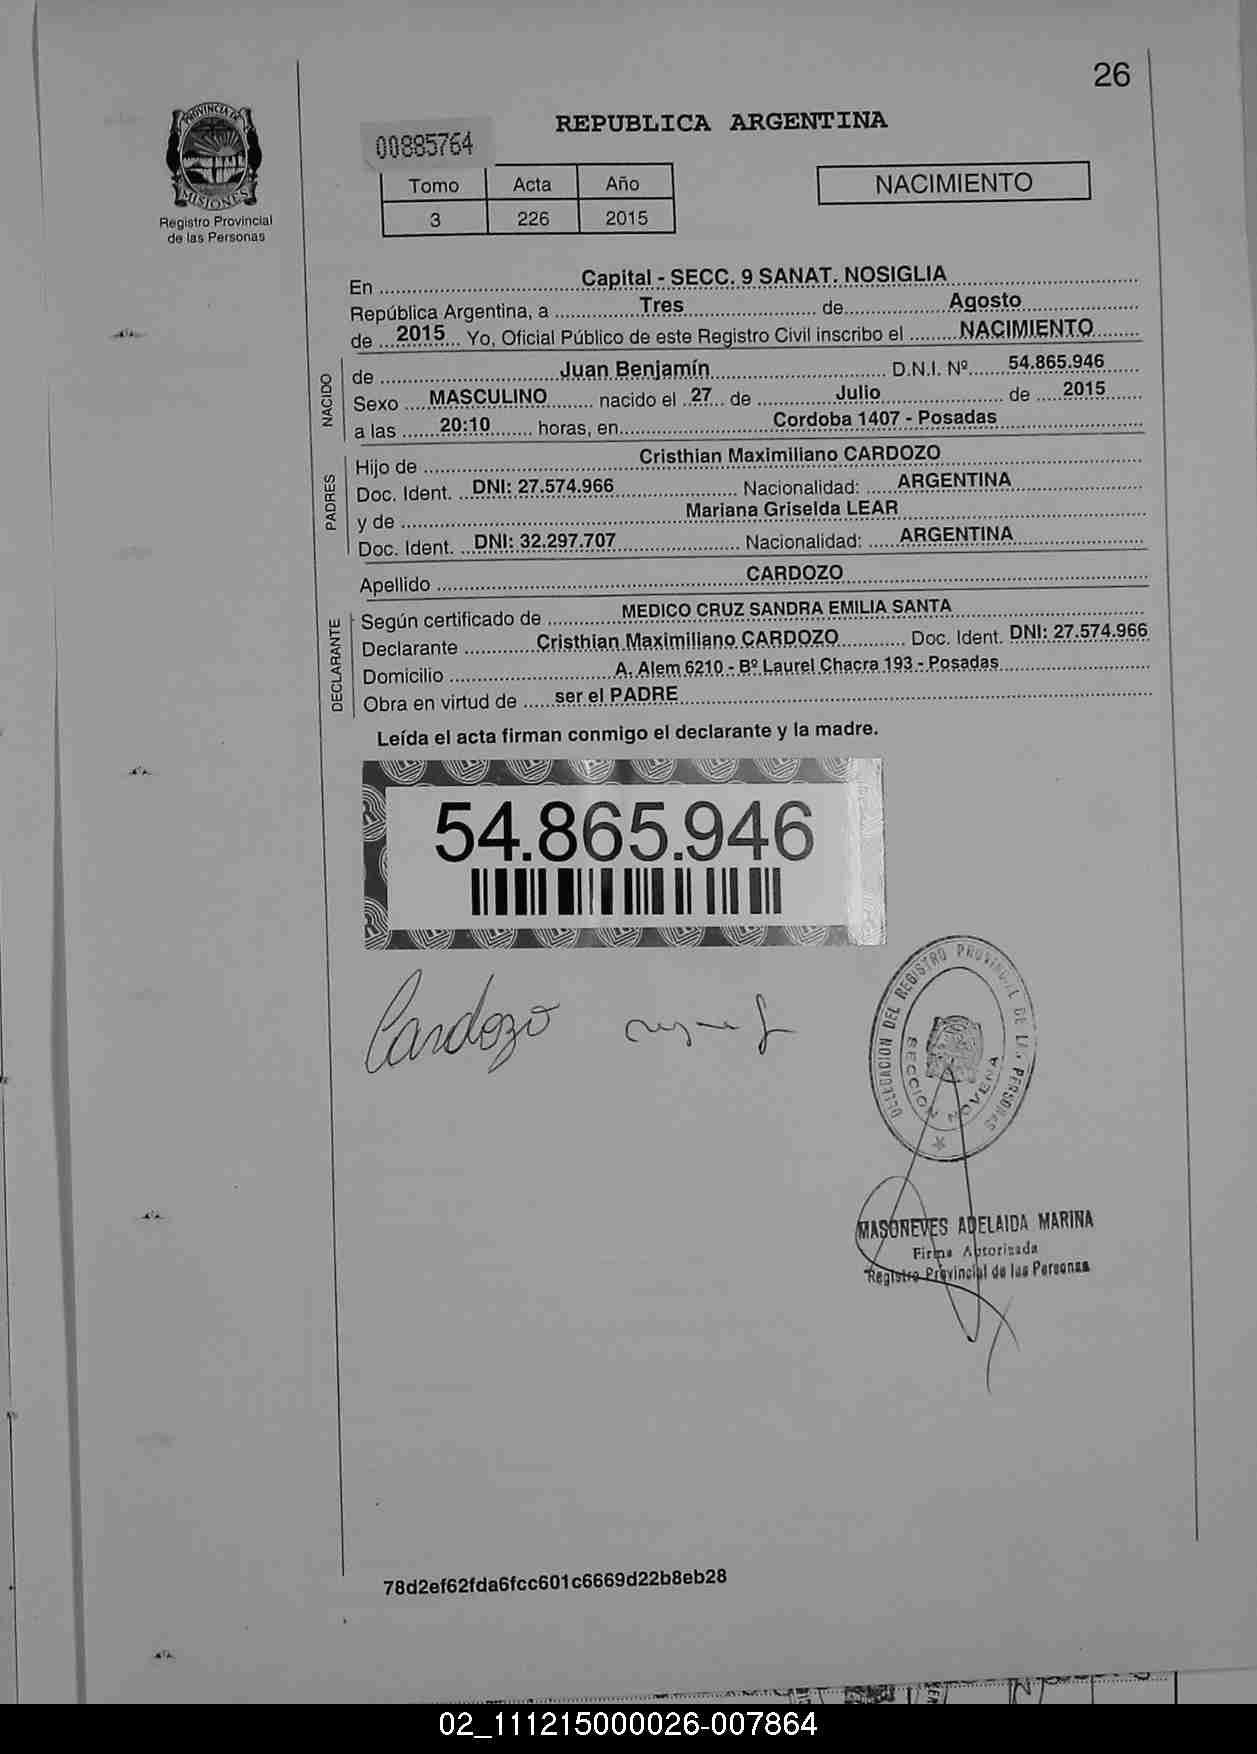 26
PROVINCIA DE
MISIONES
Registro Provincial
de las Personas
REPUBLICA ARGENTINA
00885764
Tomo Acta Año
3 226 2015
NACIMIENTO
En Capital - SECC. 9 SANAT. NOSIGLIA
República Argentina, a Tres de Agosto
de 2015 Yo, Oficial Público de este Registro Civil inscribo el NACIMIENTO
NACIDO
de Juan Benjamín D.N.I. Nº 54.865.946
Sexo MASCULINO nacido el 27 de Julio de 2015
a las 20:10 horas, en Cordoba 1407 - Posadas
PADRES
Hijo de Cristhian Maximiliano CARDOZO
Doc. Ident. DNI: 27.574.966 Nacionalidad: ARGENTINA
y de Mariana Griselda LEAR
Doc. Ident. DNI: 32.297.707 Nacionalidad: ARGENTINA
Apellido CARDOZO
DECLARANTE
Según certificado de MEDICO CRUZ SANDRA EMILIA SANTA
Declarante Cristhian Maximiliano CARDOZO Doc. Ident. DNI: 27.574.966
Domicilio A. Alem 6210 - Bº Laurel Chacra 193 - Posadas
Obra en virtud de ser el PADRE
Leída el acta firman conmigo el declarante y la madre.
54.865.946
Cardozo
DELEGACION DEL REGISTRO PROVINCIAL DE LAS PERSONAS
SECCION NOVENA
MASONEVES ADELAIDA MARINA
Firma Autorizada
Registro Provincial de las Personas
78d2ef62fda6fcc601c6669d22b8eb28
02_111215000026-007864